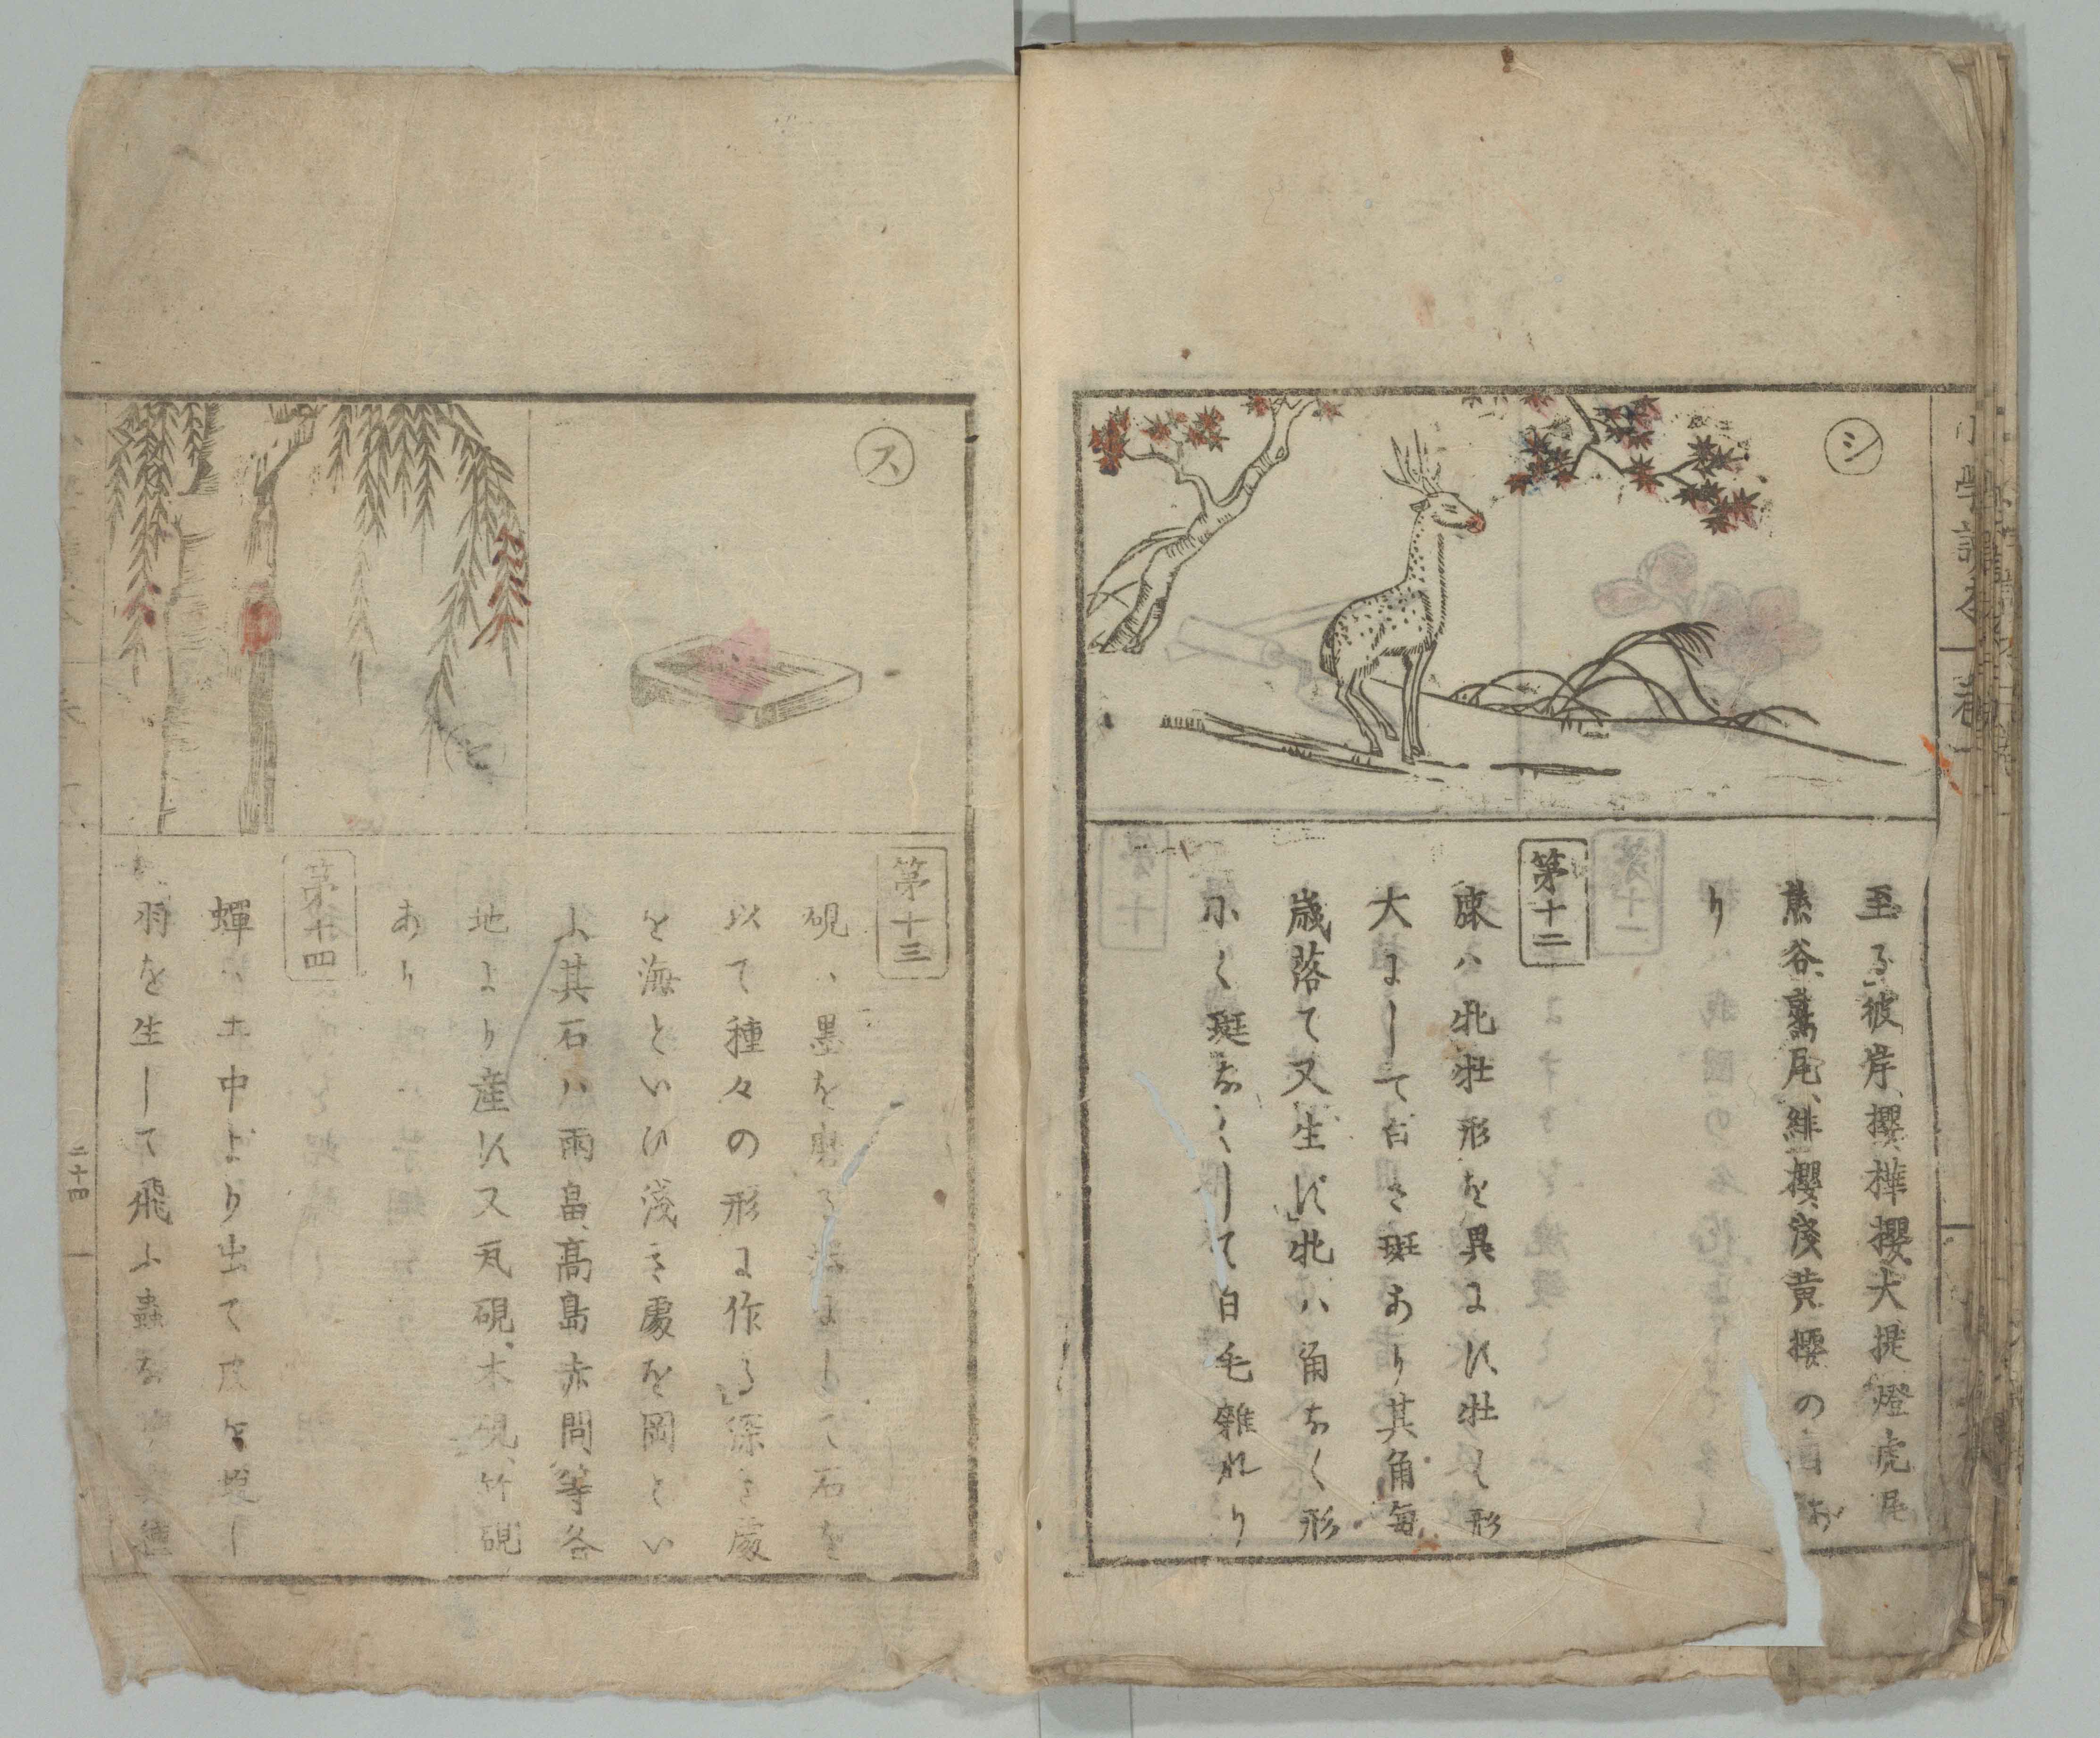 小學讀本
シ
至る彼岸、櫻、樺櫻、大提燈、虎尾
熊谷、鷲尾、緋櫻、淺黄櫻の
り
第十二
鹿ハ牝牡形を異にす牡ハ形
大にして白き斑あり其角毎
歳落て又生ず牝ハ角なく形
小く斑なくして白毛雜れり
ス
第十三
硯ハ墨を磨る にして石を
以て種々の形に作る深き處
を海といひ淺き處を岡とい
ふ其石ハ雨畠、高島、赤間、等各
地より産す又瓦硯、木硯、竹硯
あり
第十四
蟬ハ土中より出て皮を
羽を生して飛ふ蟲な 種
二十四